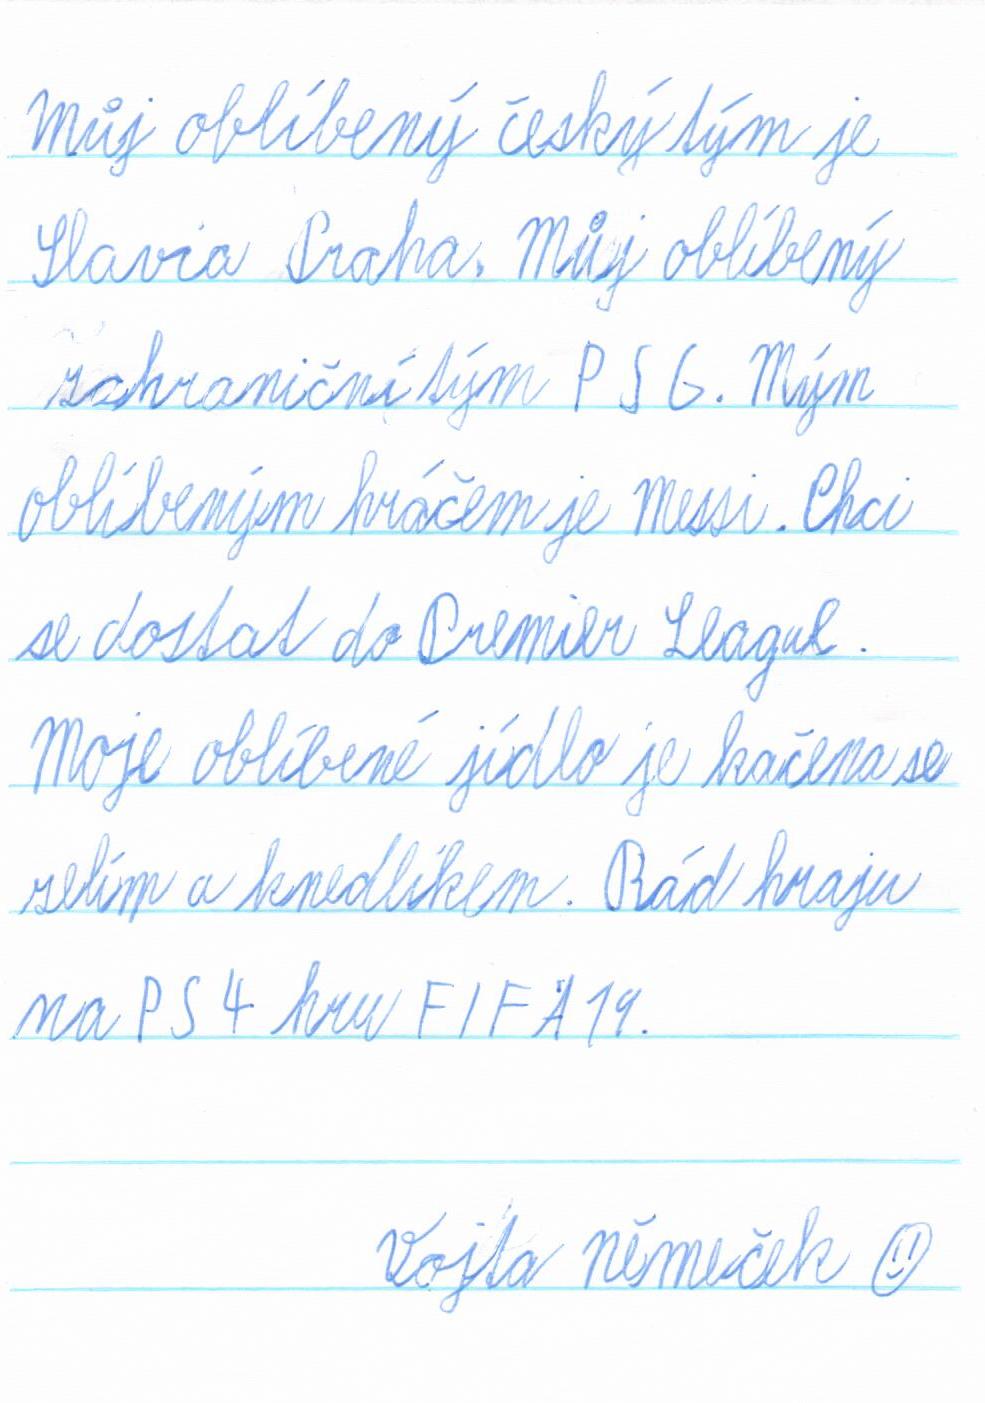 Můj oblíbený český tým je
Slavia Praha. Můj oblíbený
zahraniční tým PSG. Mým
oblíbeným hráčem je Messi. Chci
se dostat do Premier League.
Moje oblíbené jídlo je kačena se
zelím a knedlíkem. Rád hraju
na PS4 hru FIFA 19.
Vojta Němeček